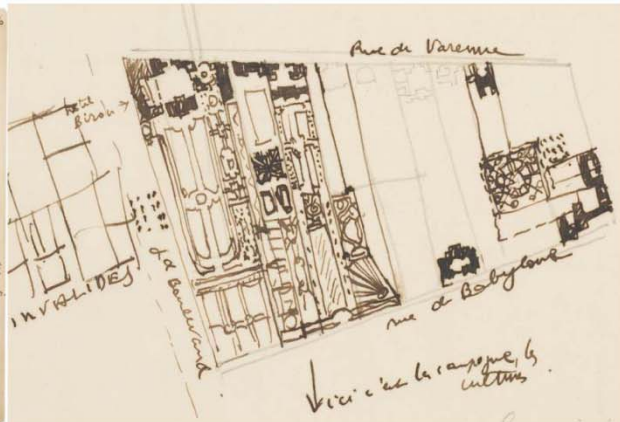 Rue de Varenne
hotel
Biron
INVALIDES
Le Boulevard
rue de Babylone
ici c'est la campagne, les
cultures.